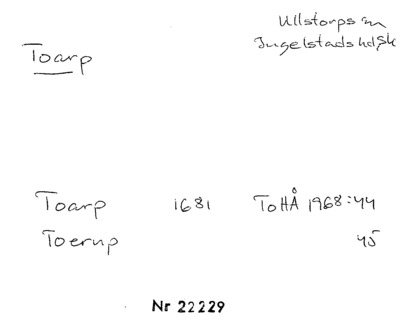 Ullstorps sn
Ingelstads hd, Sk
Toarp
Toarp 1681 ToHÅ 1968:44
Toerup 45
Nr 22229